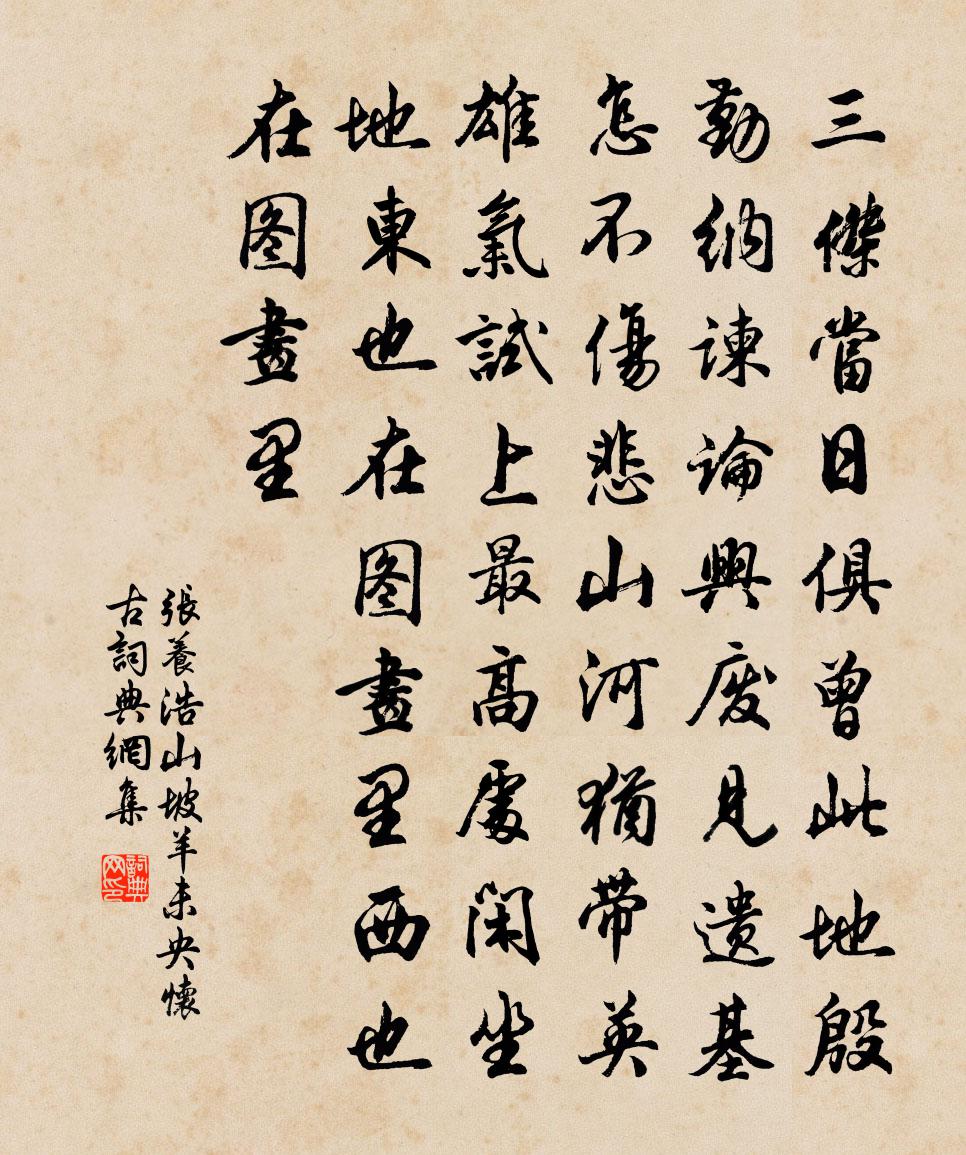 三傑當日俱曾此地殷
勤納諫論興废見遗基
怎不傷悲山河猶带英
雄氣試上最高處閑坐
地東也在图畫里西也
在图畫里
張養浩山坡羊未央懷
古詞典網集
詞典网印